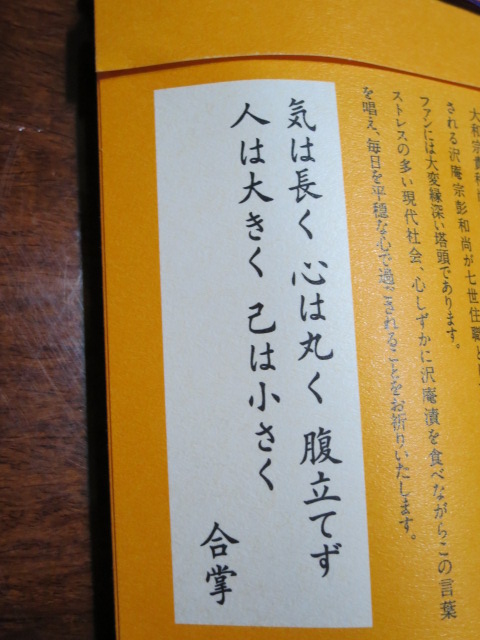 される沢庵宗彭和尚が七世住職と
ファンには大変縁深い塔頭であります。
ストレスの多い現代社会、心しずかに沢庵漬を食べながらこの言葉
を唱え、毎日を平穏な心で過ごされることをお祈りいたします。
気は長く 心は丸く 腹立てず
人は大きく 己は小さく
合掌